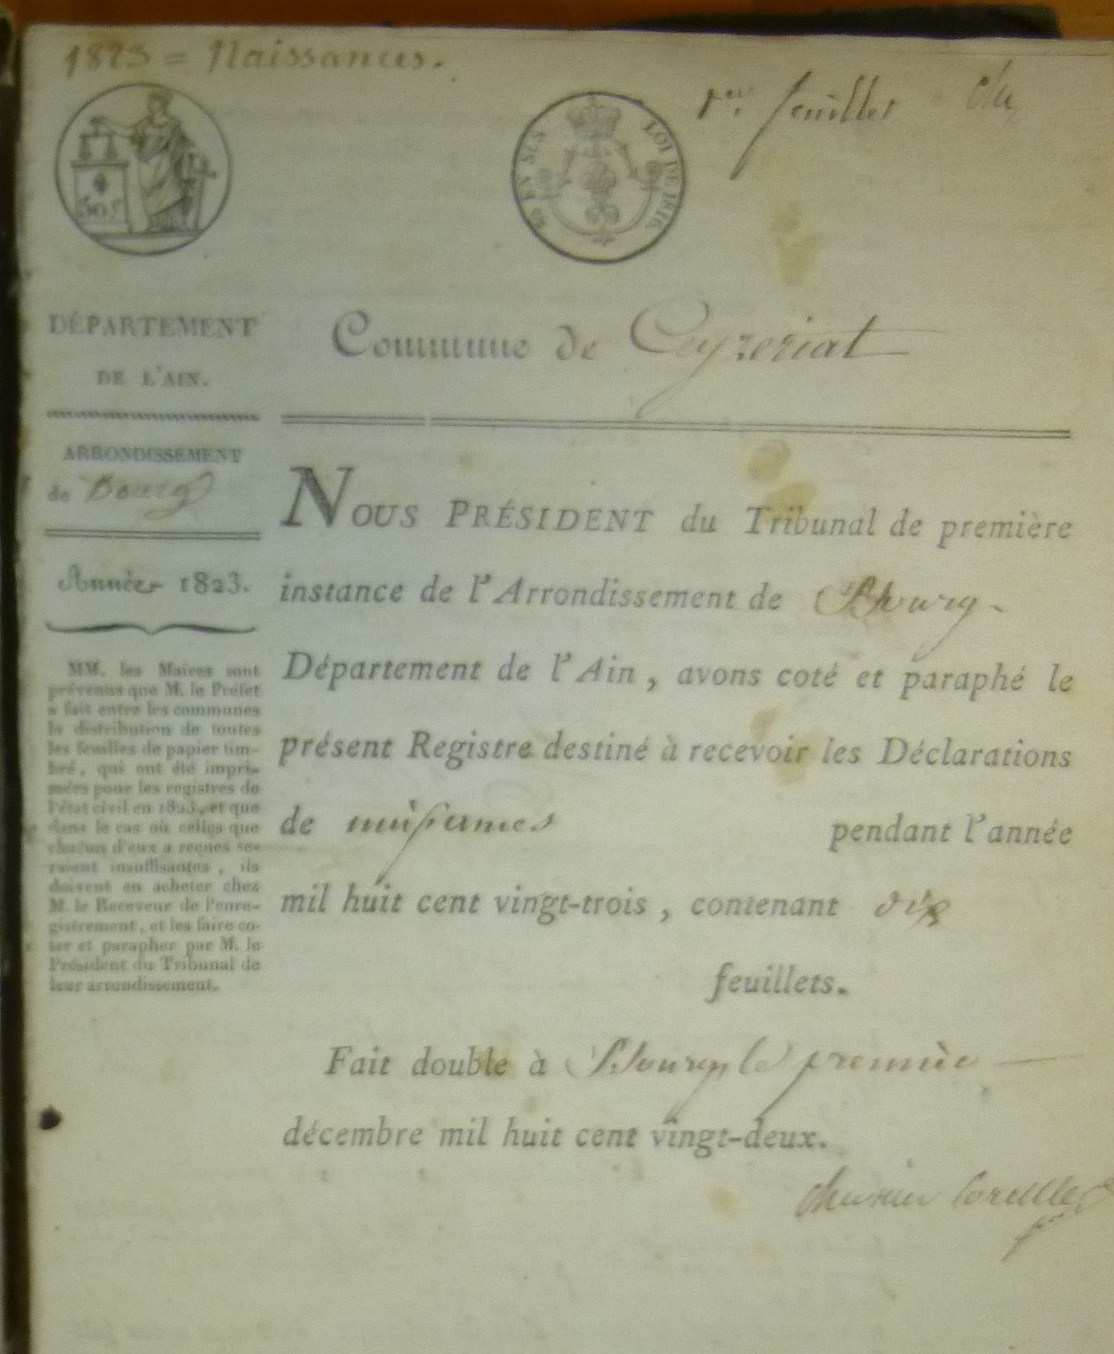 1823 = Naissances.
1er feuillet
50 C.
& EN SUS
LOI DE 1816
DÉPARTEMENT
DE L'AIN.
ARRONDISSEMENT
de Bourg
Année 1823.
MM. les Maires sont
prévenus que M. le Préfet
a fait entre les communes
la distribution de toutes
les feuilles de papier tim-
bré, qui ont été impri-
mées pour les registres de
l'état civil en 1823, et que
dans le cas où celles que
chacun d'eux a reçues se-
raient insuffisantes, ils
doivent en acheter chez
M. le Receveur de l'enre-
gistrement, et les faire co-
ter et parapher par M. le
Président du Tribunal de
leur arrondissement.
Commune de Ceyzeriat
NOUS PRÉSIDENT du Tribunal de première
instance de l'Arrondissement de Bourg
Département de l'Ain, avons coté et paraphé le
présent Registre destiné à recevoir les Déclarations
de naissances pendant l'année
mil huit cent vingt-trois, contenant dix
feuillets.
Fait double à Bourg, le premier
décembre mil huit cent vingt-deux.